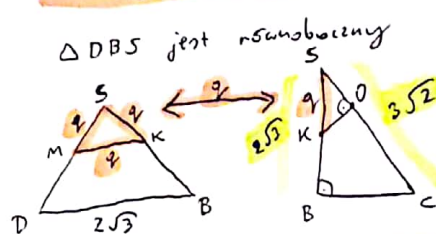 △ DBS jest równoboczny
S
q q
M K
q
D B
2√3
q
S
q O
K
2√3 3√2
B C